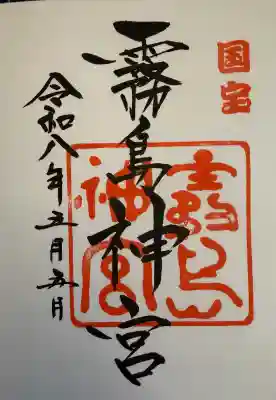 国宝
霧島神宮
霧島神宮
令和八年五月五日